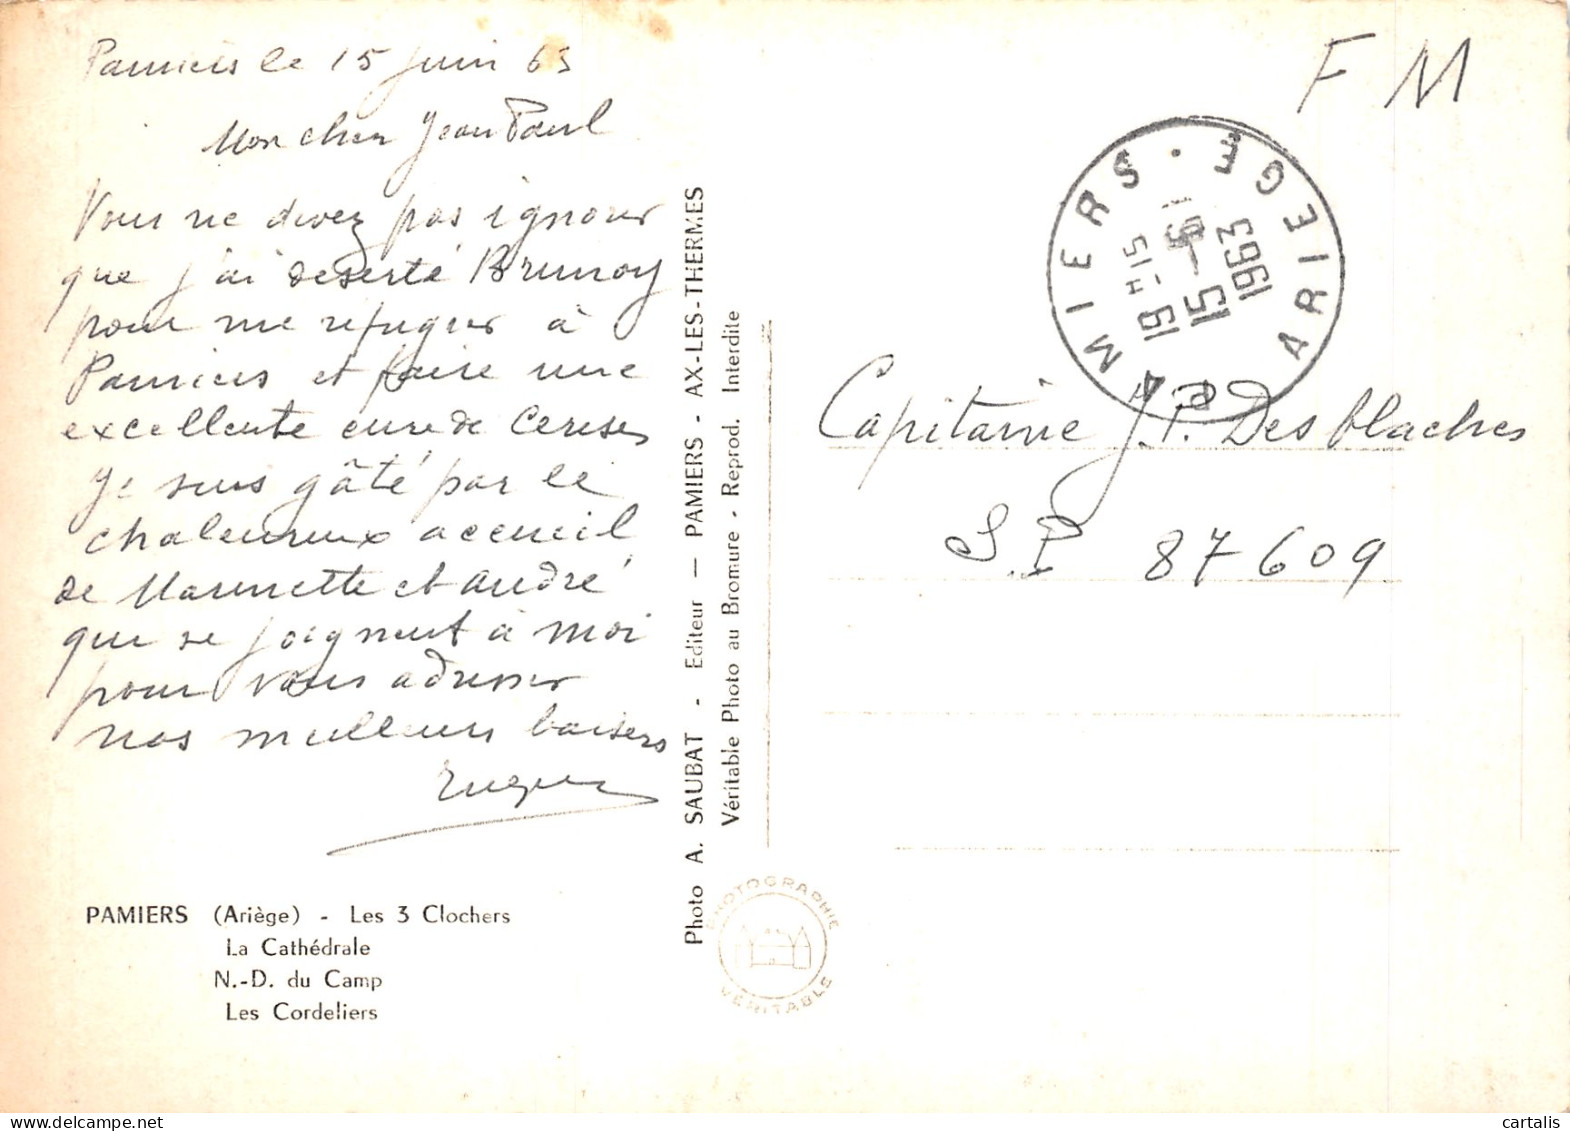 Pamiers le 15 juin 63
Mon cher Jean Paul
Vous ne devez pas ignorer
que j'ai deserté Brunoy
pour me refugier à
Pamiers et faire une
excellente cure de Cerises
Je suis gâté par le
chaleureux accueil
de Marinette et andré
qui se joignent à moi
pour vous adresser
nos meilleurs baisers
PAMIERS (Ariège) - Les 3 Clochers
La Cathédrale
N.-D. du Camp
Les Cordeliers
Photo A. SAUBAT - Editeur — PAMIERS - AX-LES-THERMES
Véritable Photo au Bromure - Reprod. Interdite
PHOTOGRAPHIE
VÉRITABLE
F M
PAMIERS · ARIEGE
15 H
15 - 6
1963
Capitaine J.P. Desblaches
S.P 87609
cartalis
cartalis.delcampe.net